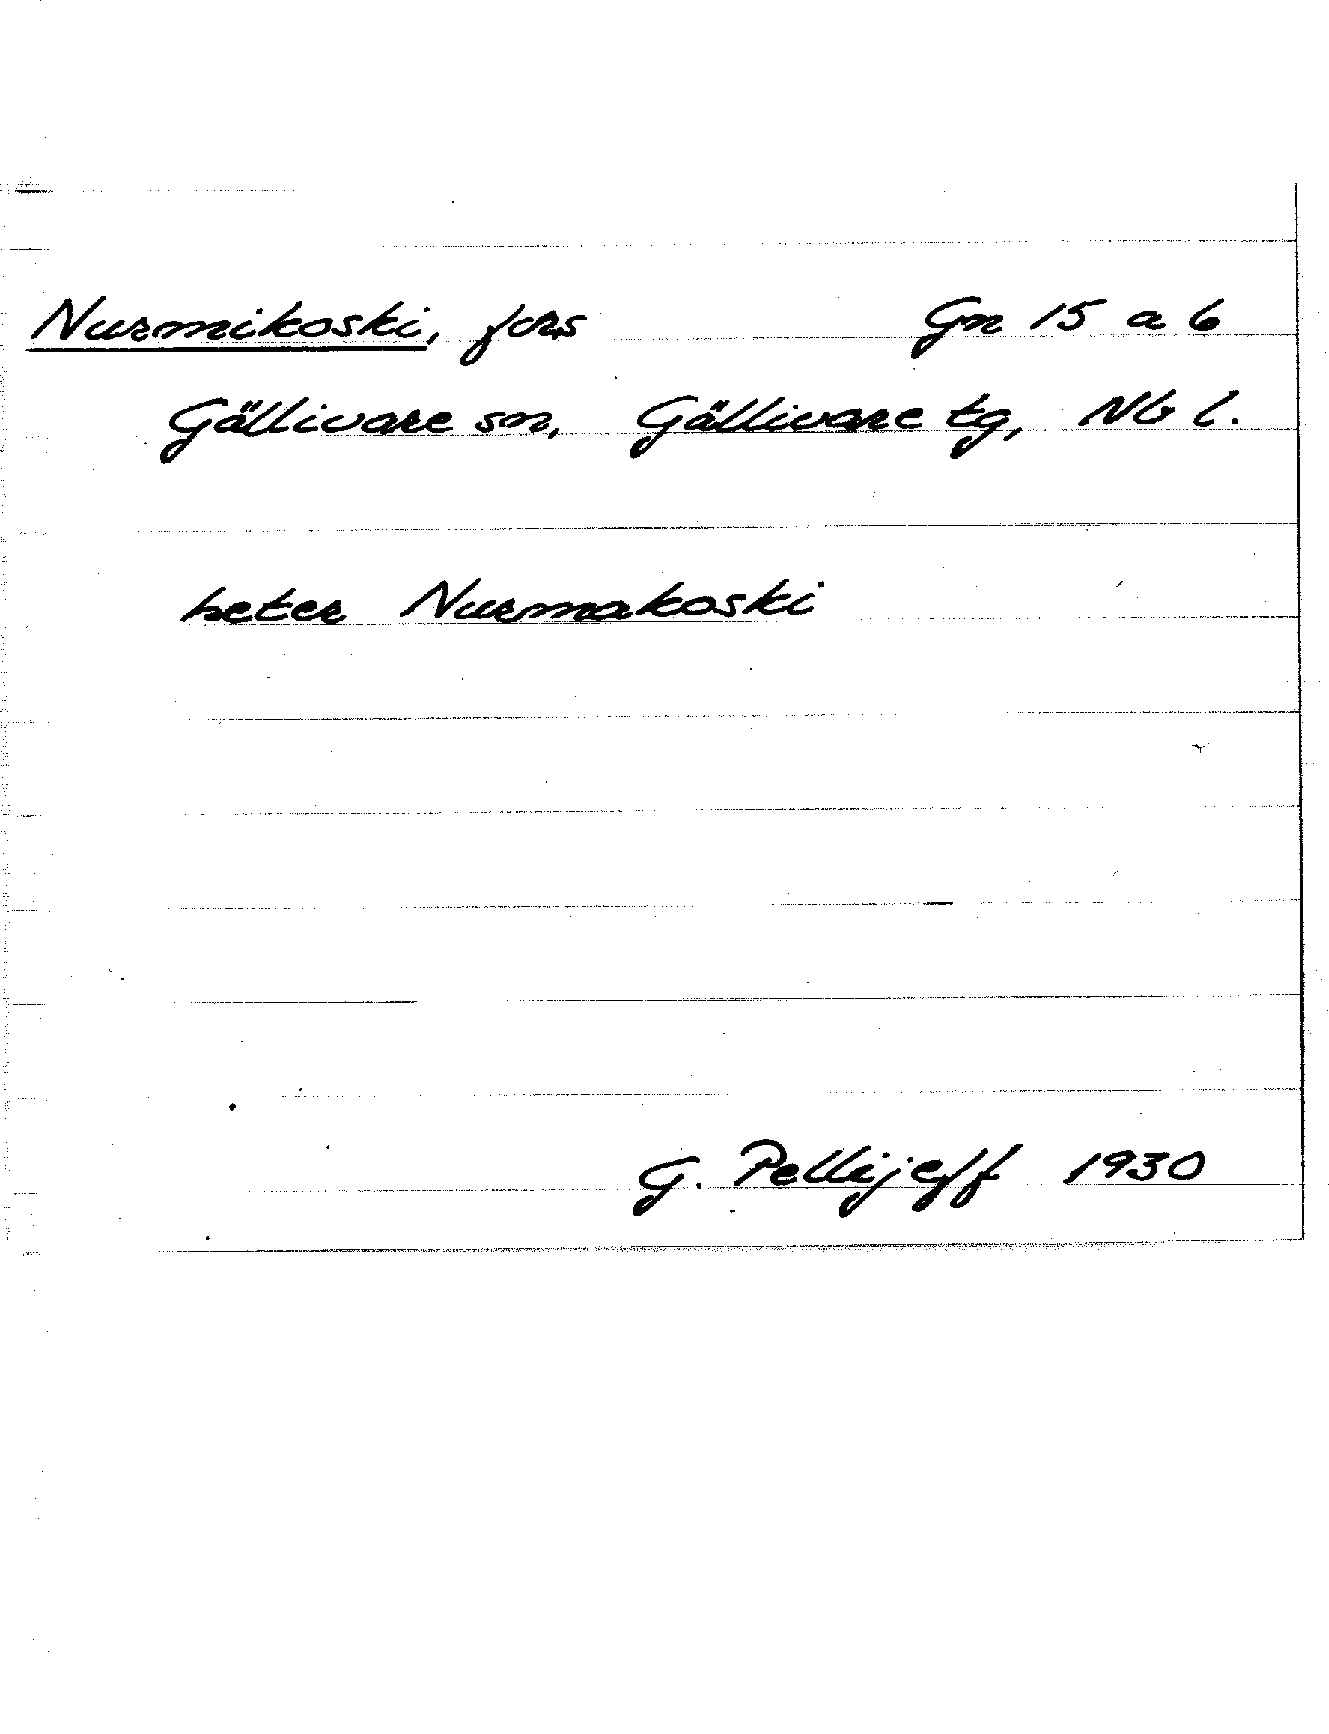 Nurmikoski, fors Gn 15 a 6
Gällivare sn, Gällivare tg, Nb l.
heter Nurmakoski
G. Pellijeff 1930